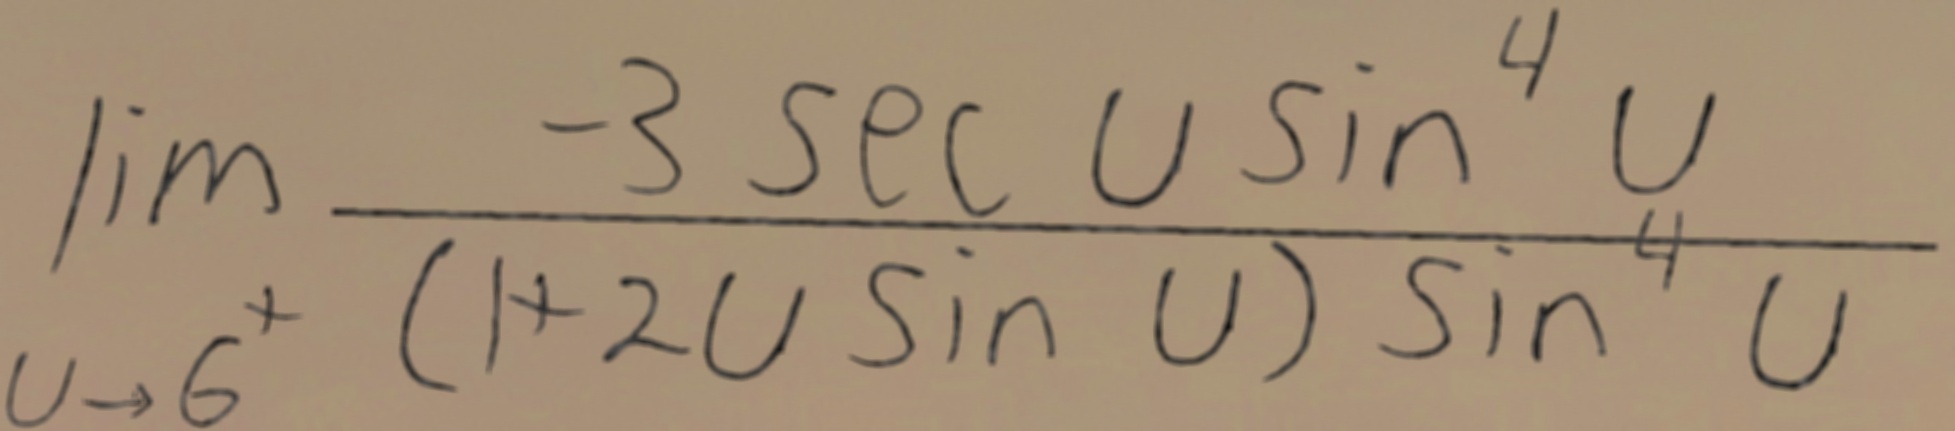 \lim_{u \to 6^+} \frac{-3 \sec u \sin^4 u}{(1+2u \sin u) \sin^4 u}